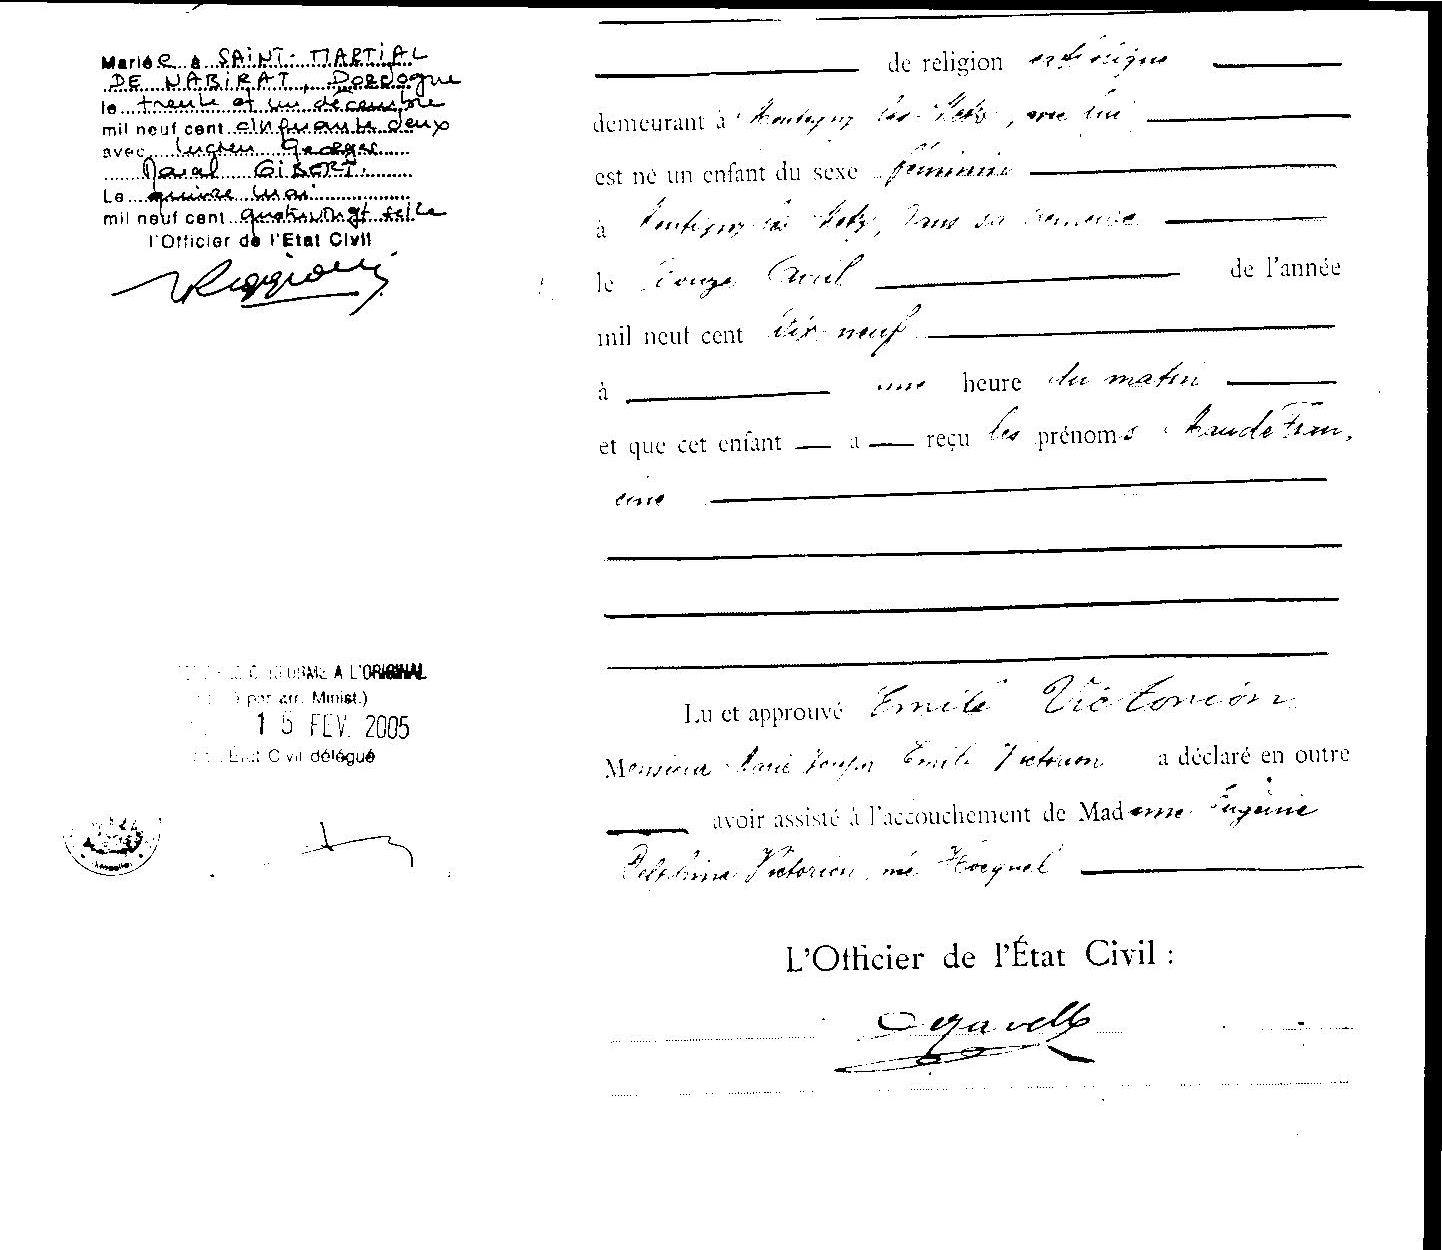 Mariée à SAINT-MARTIAL
DE NABIRAT, Dordogne
le trente et un décembre
mil neuf cent cinquante deux
avec Lucien Georges
GIBERT.
Le quinze mai
mil neuf cent quatrevingt seize
l'Officier de l'Etat Civil
CONFORME A L'ORIGINAL
par arr. Minist.)
15 FEV. 2005
État Civil délégué
de religion catholique
demeurant à Montigny les Metz, avec lui
est né un enfant du sexe féminin
à Montigny les Metz, dans sa demeure
le douze avril de l'année
mil neuf cent dix neuf
à une heure du matin
et que cet enfant a reçu les prénoms Maude Fran,
cine
Lu et approuvé Emile Victorion
Monsieur Marie Joseph Emile Victorion a déclaré en outre
avoir assisté à l'accouchement de Madame Eugénie
Delphine Victorion, née Hocquel
L'Officier de l'État Civil :